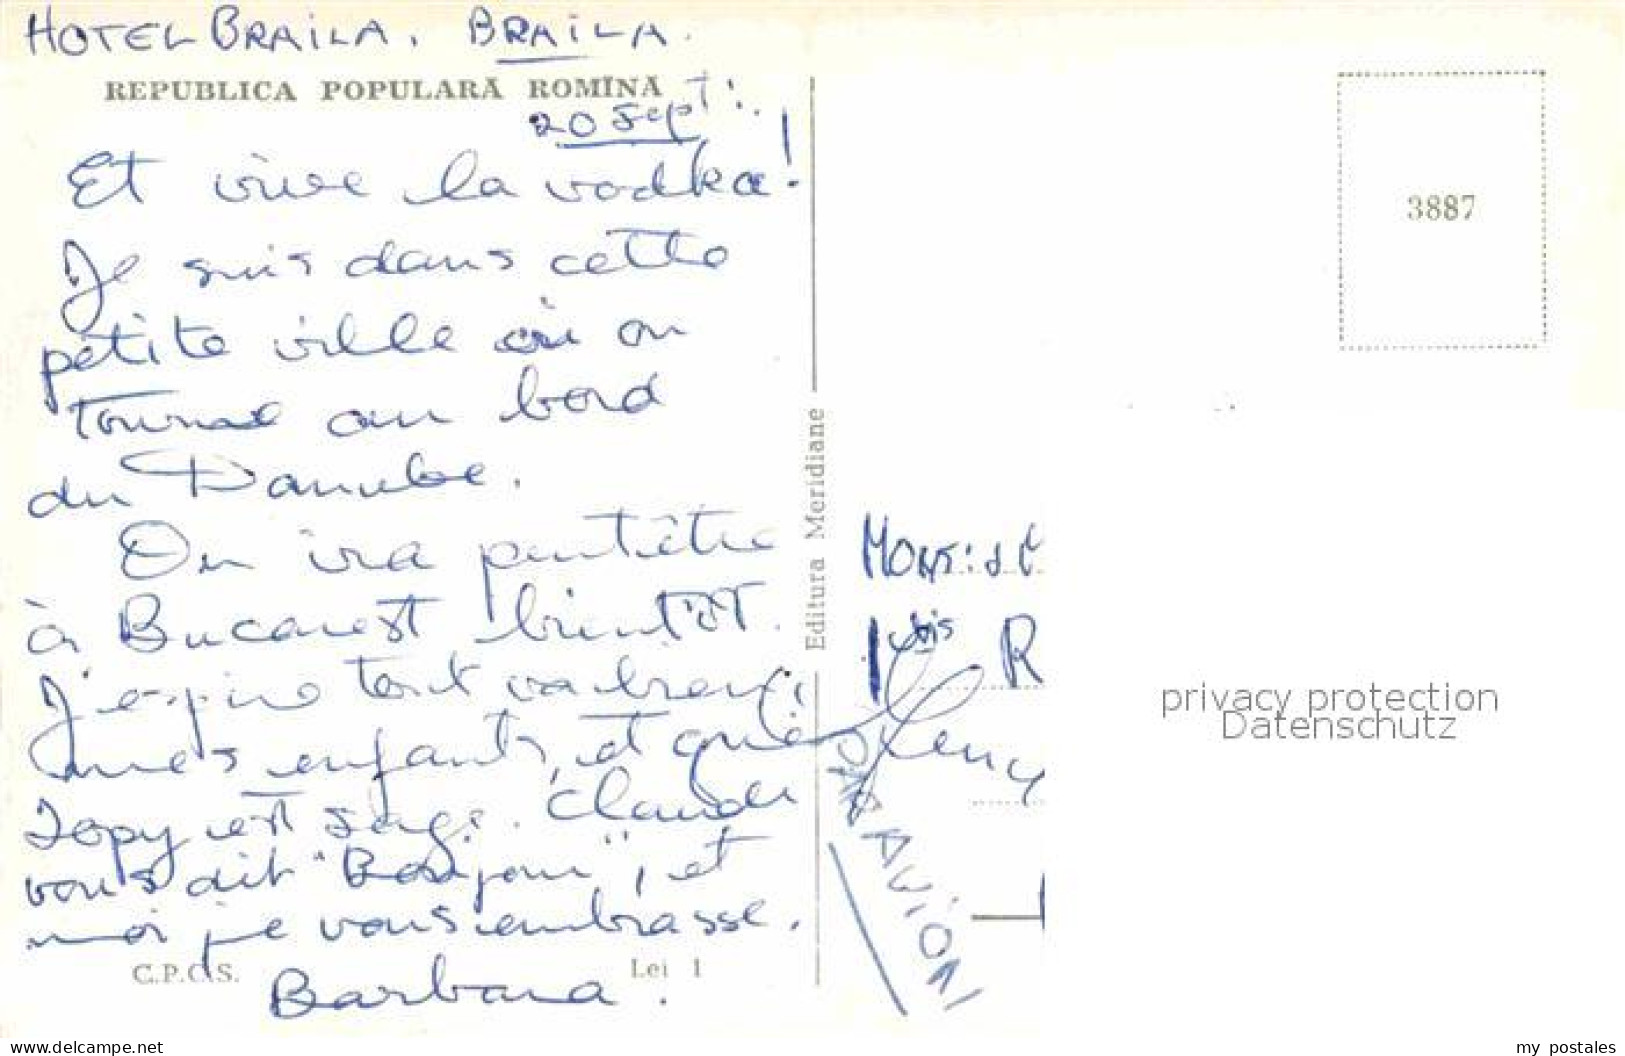 HOTEL BRAILA. BRAILA.
REPUBLICA POPULARĂ ROMÎNĂ
20 sept:.
Et vive la vodka!
Je suis dans cette
petite ville où on
tourne au bord
du Danube.
On ira peut être
à Bucarest bientôt.
J'espère tout va bien,
mes enfants, et que
Jopy est sage. Claude
vous dit "Bonjour", et
moi je vous embrasse.
Barbara.
C.P.C.S. Lei 1
Editura Meridiane
3887
1 bis R
PAR AVION
privacy protection
Datenschutz
www.delcampe.net
my_postales